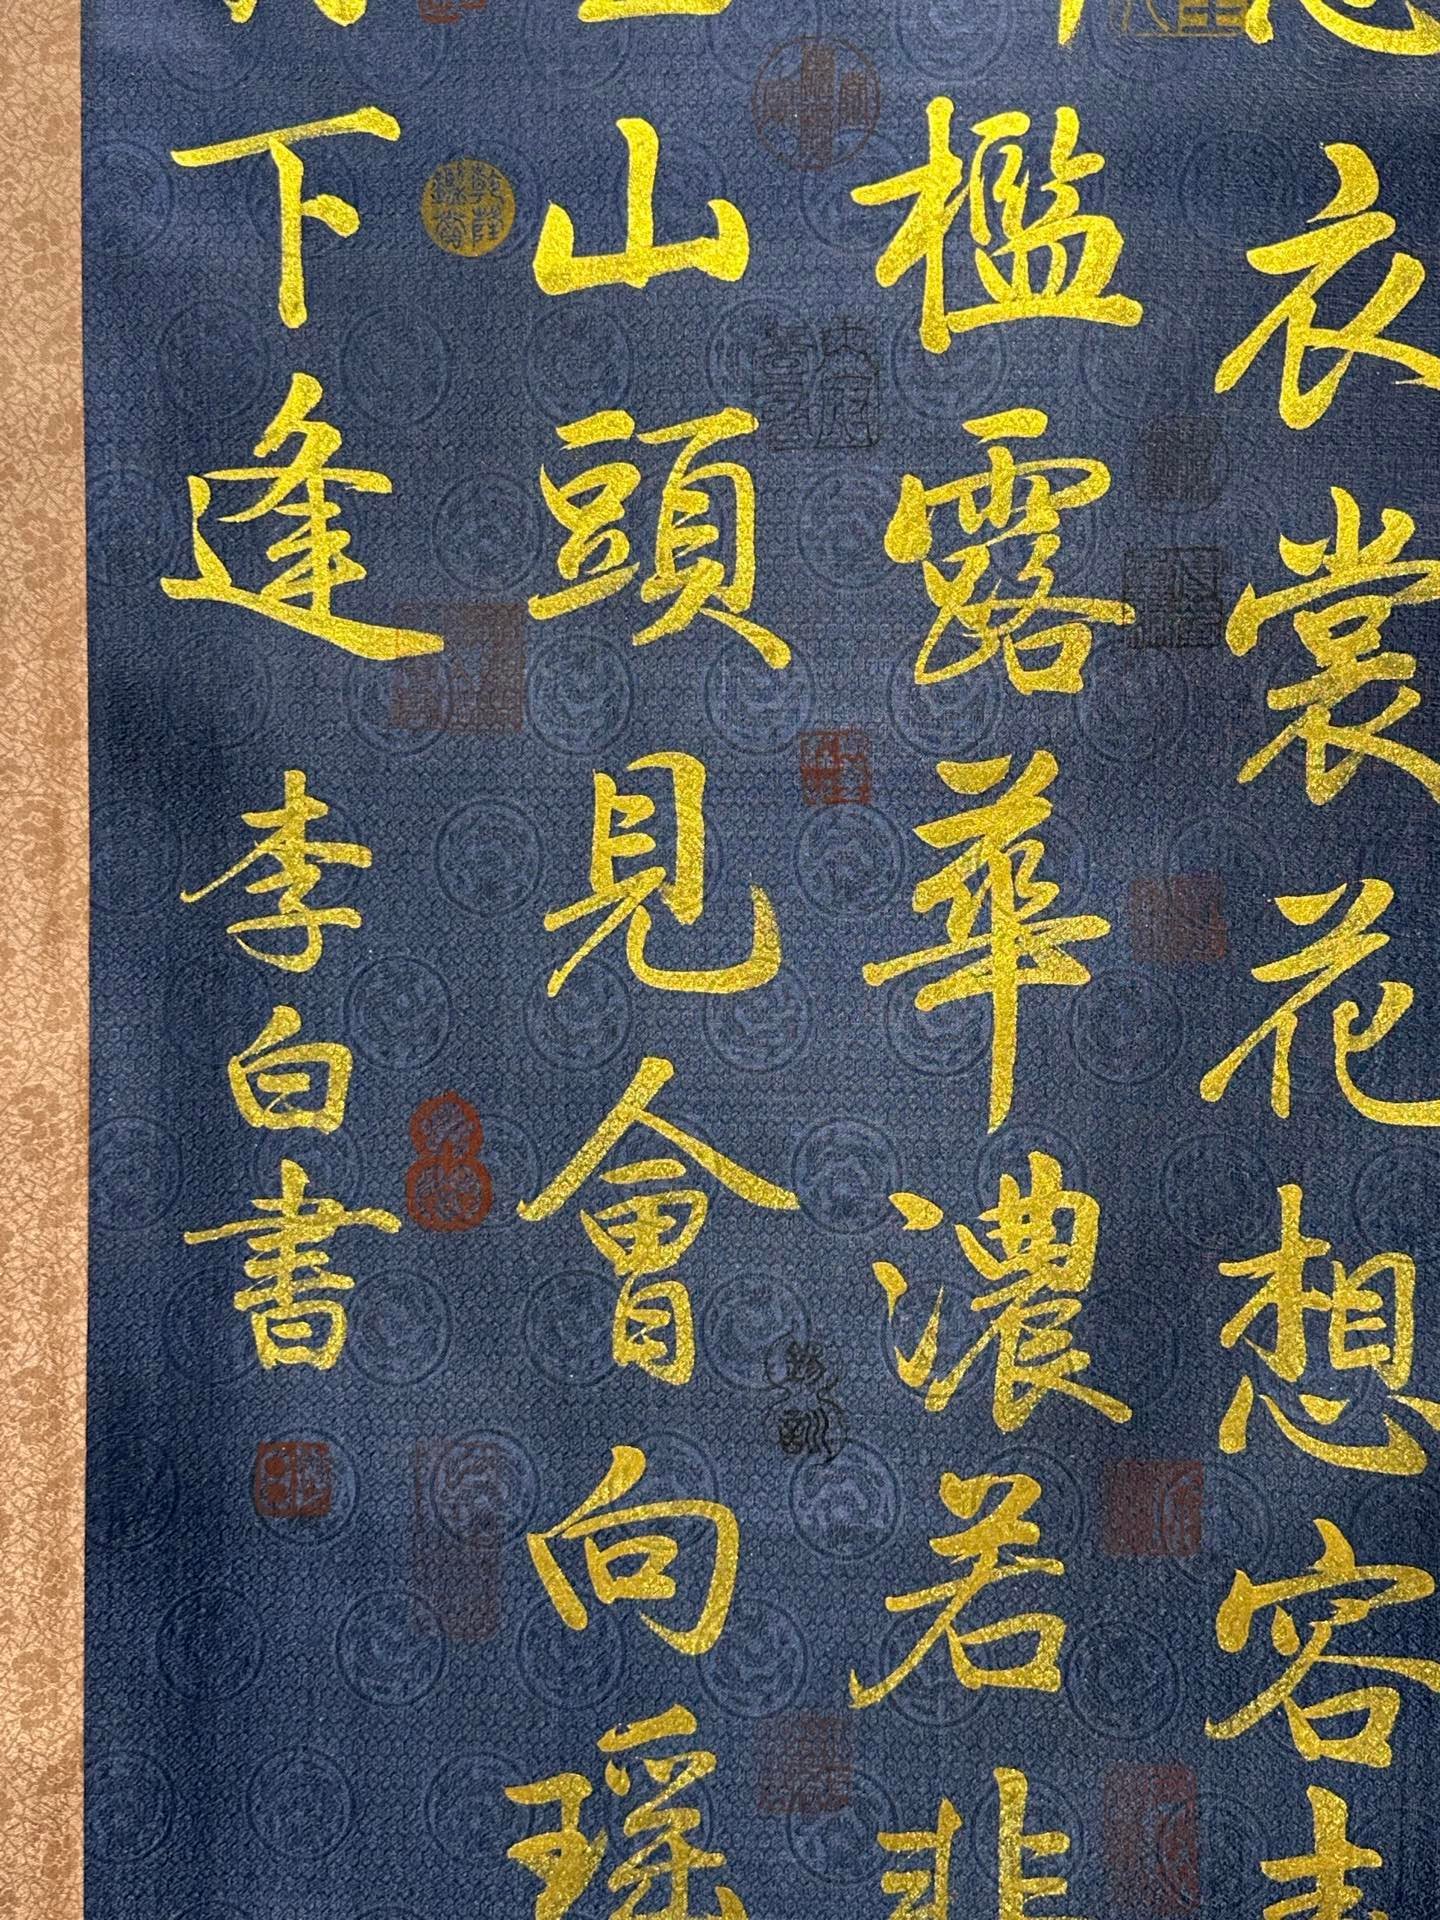 衣裳花想容
檻露華濃若非
山頭見會向瑶
下逢 李白書